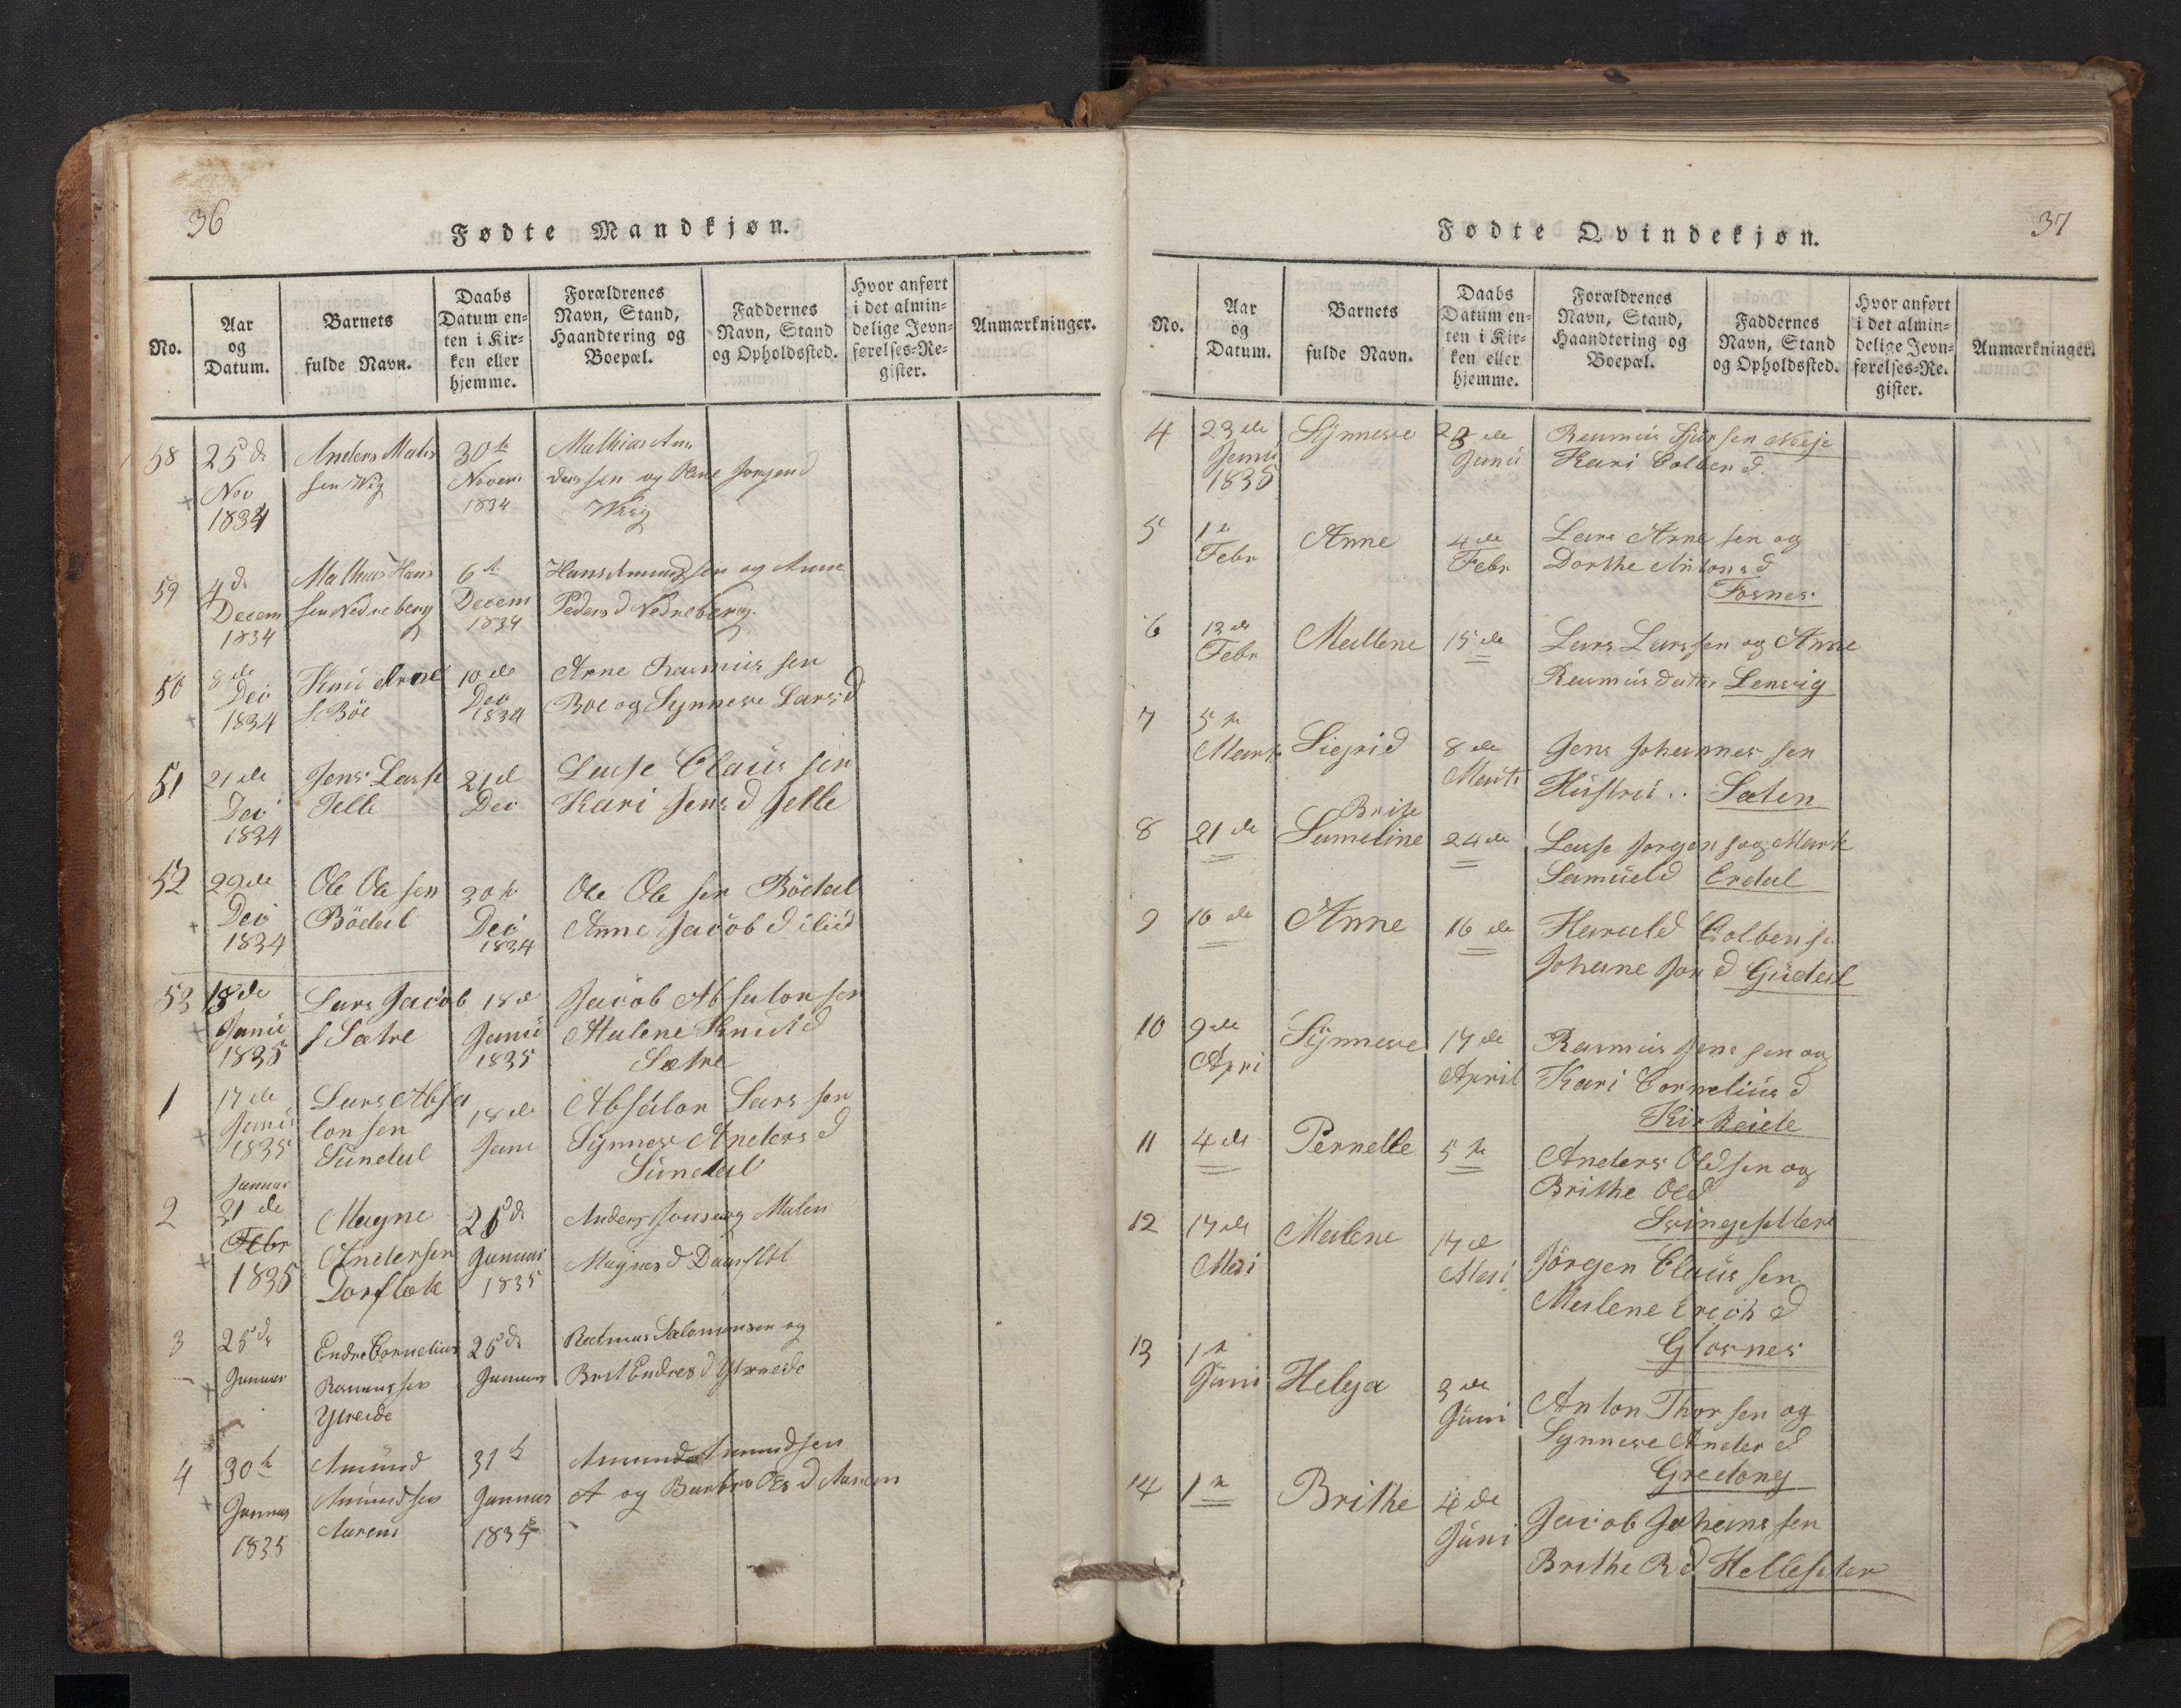 36
Fødte Mandkjøn.
No.
Aar
og
Datum.
Barnets
fulde Navn.
Daabs
Datum en=
ten i Kir=
ken eller
hjemme.
Forældrenes
Navn, Stand,
Haandtering og
Boepæl.
Faddernes
Navn, Stand
og Opholdssted.
Hvor anført
i det almin=
delige Jevn=
førelses=Re=
gister.
Anmærkninger.
58
25 d
Nov
1834
Anders Maths
sen
30 te
Novem
1834
Mathias An
dersen og
59
4 de
Decem
1834
Mathias Hans
sen Nedreberg
6 te
Decem
1834
Hans Amundsen og Anne
Peders d Nedreberg
50
8 de
Dec
1834
Knu Arne
s Böe
10 de
Dec
1834
Arne Rasmus sen
Boe og Synneve Lars d
51
21 de
Dec
1834
Jens Lasse
Felle
21 d
Dec
Lasse Claüs sen
Kari Jens d felle
52
29 de
Dec
1834
Ole Ole sen
Bödal
30 te
Dec
1834
Ole Ole sen Bödal
Anne Jacob d
53
18 de
Janü
1835
Lars Jacob
s Sætre
18 d
Janü
1835
Jacob Absalon sen
Malene Knüt d
Sætre
1
17 de
Janü
1835
Lars Absa
lon sen
Sündal
18 de
Janü
Absalon Lars sen
Synneve Anders d
Sündal
2
Januar
21 de
Febr
1835
Magne
Andersen
25 d
Januar
1835
Anders Jonsen og Malen
Magnes d
3
25 de
Januar
Endre Cornelius
Rasmussen
Ytreide
25 de
Januar
Rasmus Salomonsen og
Brit Endres d Ytreeide
4
30 te
Januar
1835
Amund
Amundsen
31 te
Januar
1835
Amund Amundsen
37
Fødte Qvindekjøn.
No.
Aar
og
Datum.
Barnets
fulde Navn.
Daabs
Datum en=
ten i Kir=
ken eller
hjemme.
Forældrenes
Navn, Stand,
Haandtering og
Boepæl.
Faddernes
Navn, Stand
og Opholdssted.
Hvor anført
i det almin=
delige Jevn=
førelses=Re.
gister.
Anmærkninger.
4
23 de
Janü
1835
Synneve
Janü
Rasmus Sjur sen
Kari Colben d.
5
1 te
Febr
Anne
4 de
Febr
Lars Arne sen og
Dorthe Antons d
Fosnes
6
13 de
Febr
Mallene
15 de
Lars Lars sen og Anne
Rasmüs datter Lensvig
7
5 te
Marts
Siegrid
8 de
Marts
Jens Johannes sen
Hüstrü .. Sæten
8
21 de
Brite
Sameline
24 de
Lasse Jorgen s og Marte
Samüel d Erdal
9
16 de
Anne
16 de
Harald Colben s
Johane Jon d Güdal
10
9 de
Apri
Synneve
17 de
April
Rasmus Jens sen og
Kari Cornelius d
Kirkeide
11
4 de
Pernelle
5 te
Anders Ole sen og
Brithe Ole d
12
17 de
Mai
Malene
17 d
Mai
Jörgen Claüs sen
Malene Erich d
Glosnes
13
1 te
Jüni
Helga
3 de
Jüni
Anton Thor sen og
Synneve Ander d
Gredong
14
1 te
Brithe
4 de
Jüni
Jacob Johans sen
Brithe R d Hellesæter